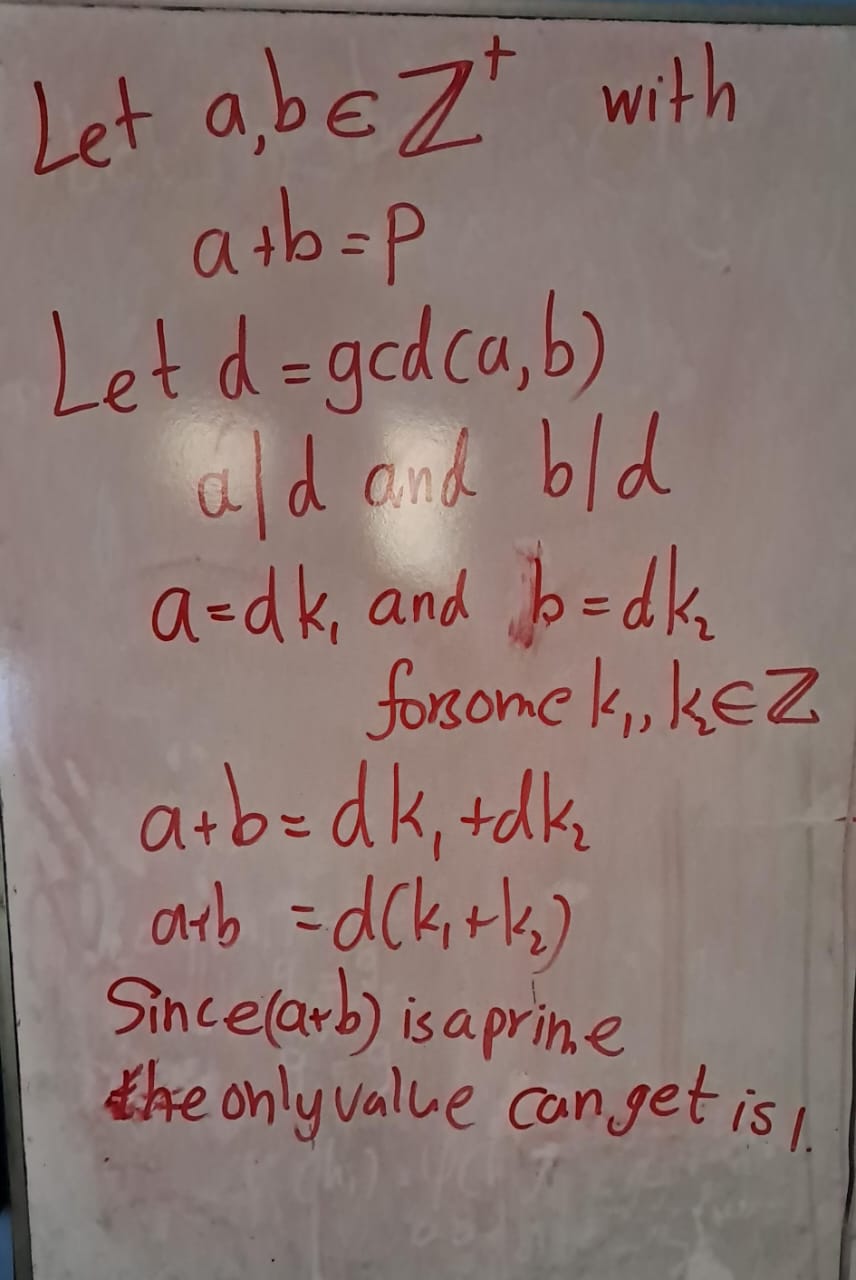 Let a,b ∈ ℤ⁺ with
a+b=P
Let d = gcd(a,b)
a|d and b|d
a=dk₁ and b=dk₂
for some k₁, k₂ ∈ ℤ
a+b = dk₁ + dk₂
a+b = d(k₁+k₂)
Since (a+b) is a prime
the only value can get is 1.